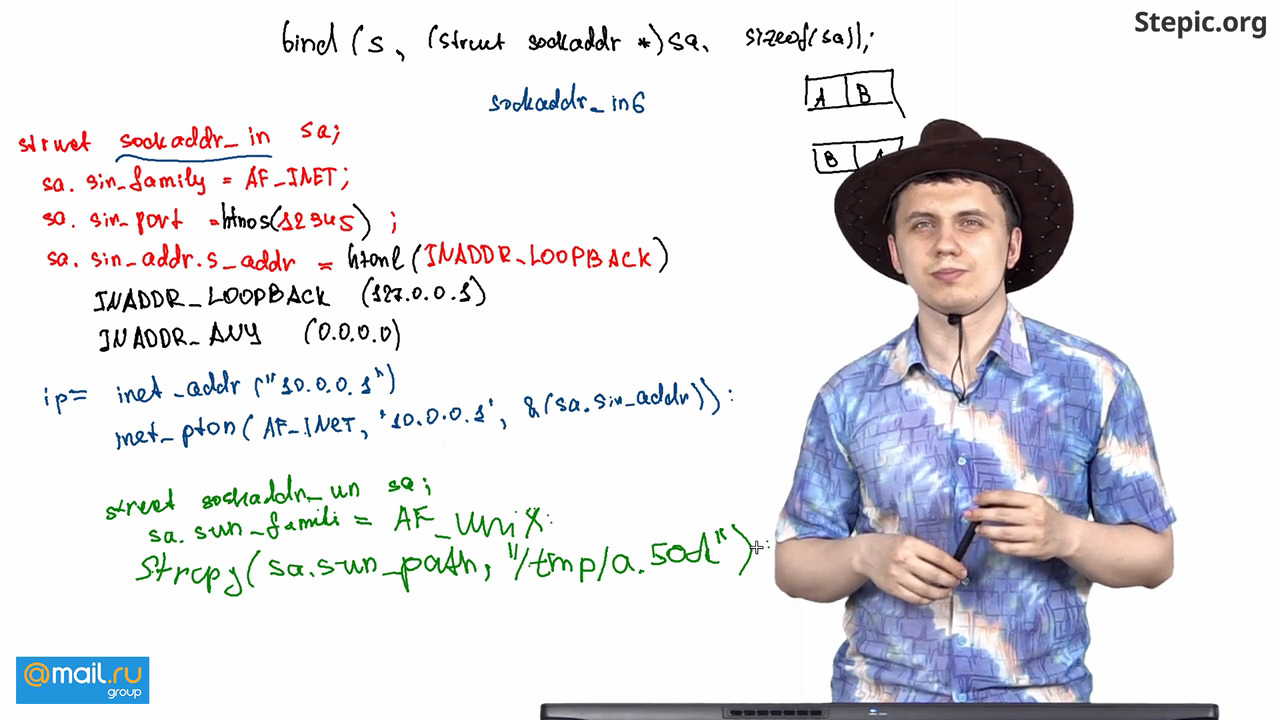 Stepic.org
bind (s, (struct sockaddr *)sa, sizeof(sa));
A B
sockaddr_in6
struct sockaddr_in sa;
B A
sa.sin_family = AF_INET;
sa.sin_port = htnos(12345);
sa.sin_addr.s_addr = htonl(INADDR_LOOPBACK)
INADDR_LOOPBACK (127.0.0.1)
INADDR_ANY (0.0.0.0)
ip= inet_addr("10.0.0.1")
inet_pton(AF_INET, "10.0.0.1", &(sa.sin_addr));
struct sockaddr_un sa;
sa.sun_famili = AF_UNIX;
strcpy(sa.sun_path, "/tmp/a.sock");
@mail.ru
group